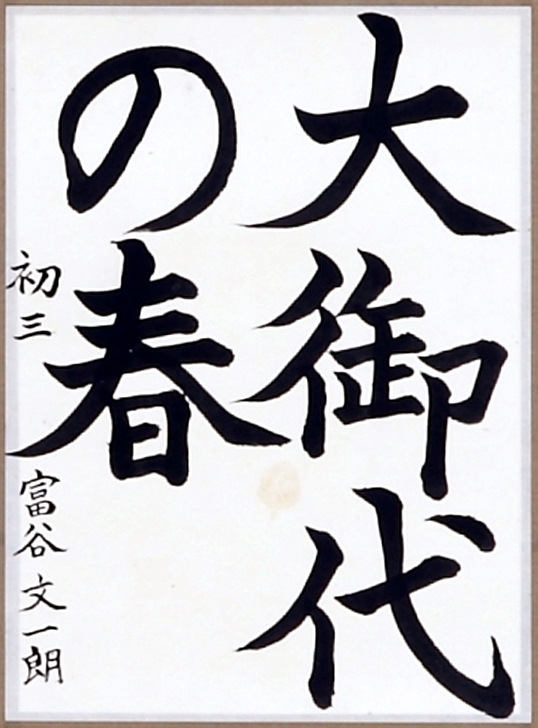 大御代
の春
初三
富谷文一朗